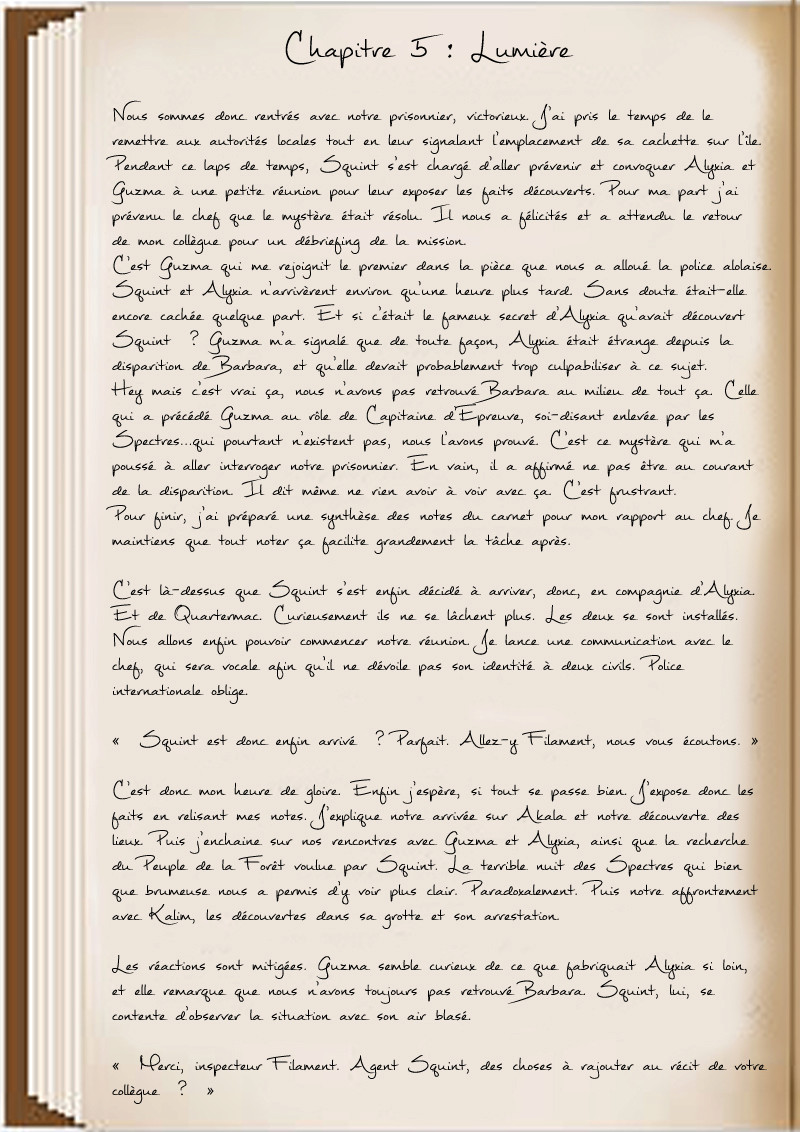 Chapitre 5 : Lumière
Nous sommes donc rentrés avec notre prisonnier, victorieux. J'ai pris le temps de le
remettre aux autorités locales tout en leur signalant l'emplacement de sa cachette sur l'île.
Pendant ce laps de temps, Squint s'est chargé d'aller prévenir et convoquer Alyxia et
Guzma à une petite réunion pour leur exposer les faits découverts. Pour ma part j'ai
prévenu le chef que le mystère était résolu. Il nous a félicités et a attendu le retour
de mon collègue pour un débriefing de la mission.
C'est Guzma qui me rejoignit le premier dans la pièce que nous a alloué la police alolaise.
Squint et Alyxia n'arrivèrent environ qu'une heure plus tard. Sans doute était-elle
encore cachée quelque part. Et si c'était le fameux secret d'Alyxia qu'avait découvert
Squint ? Guzma m'a signalé que de toute façon, Alyxia était étrange depuis la
disparition de Barbara, et qu'elle devait probablement trop culpabiliser à ce sujet.
Hey mais c'est vrai ça, nous n'avons pas retrouvé Barbara au milieu de tout ça. Celle
qui a précédé Guzma au rôle de Capitaine d'Epreuve, soi-disant enlevée par les
Spectres...qui pourtant n'existent pas, nous l'avons prouvé. C'est ce mystère qui m'a
poussé à aller interroger notre prisonnier. En vain, il a affirmé ne pas être au courant
de la disparition. Il dit même ne rien avoir à voir avec ça. C'est frustrant.
Pour finir, j'ai préparé une synthèse des notes du carnet pour mon rapport au chef. Je
maintiens que tout noter ça facilite grandement la tâche après.
C'est là-dessus que Squint s'est enfin décidé à arriver, donc, en compagnie d'Alyxia.
Et de Quartermac. Curieusement ils ne se lâchent plus. Les deux se sont installés.
Nous allons enfin pouvoir commencer notre réunion. Je lance une communication avec le
chef, qui sera vocale afin qu'il ne dévoile pas son identité à deux civils. Police
internationale oblige.
« Squint est donc enfin arrivé ? Parfait. Allez-y Filament, nous vous écoutons. »
C'est donc mon heure de gloire. Enfin j'espère, si tout se passe bien. J'expose donc les
faits en relisant mes notes. J'explique notre arrivée sur Akala et notre découverte des
lieux. Puis j'enchaine sur nos rencontres avec Guzma et Alyxia, ainsi que la recherche
du Peuple de la Forêt voulue par Squint. La terrible nuit des Spectres qui bien
que brumeuse nous a permis d'y voir plus clair. Paradoxalement. Puis notre affrontement
avec Kalim, les découvertes dans sa grotte et son arrestation.
Les réactions sont mitigées. Guzma semble curieux de ce que fabriquait Alyxia si loin,
et elle remarque que nous n'avons toujours pas retrouvé Barbara. Squint, lui, se
contente d'observer la situation avec son air blasé.
« Merci, inspecteur Filament. Agent Squint, des choses à rajouter au récit de votre
collègue ? »